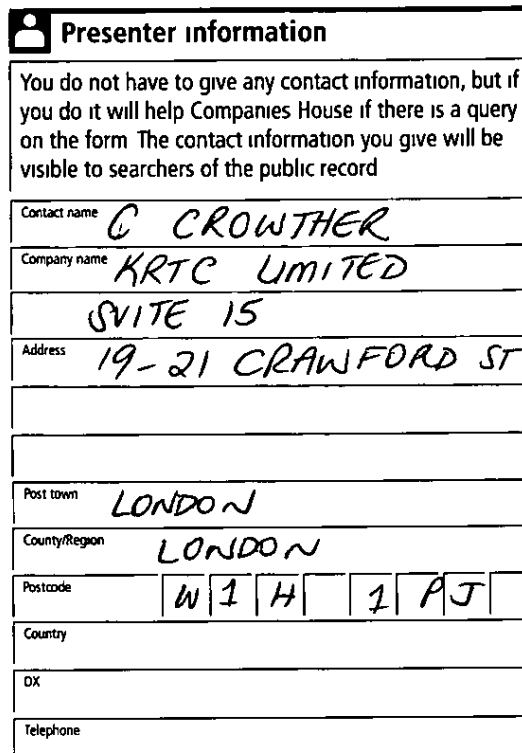 Presenter information
You do not have to give any contact information, but if
you do it will help Companies House if there is a query
on the form The contact information you give will be
visible to searchers of the public record
Contact name C CROWTHER
Company name KRTC LIMITED
SUITE 15
Address 19-21 CRAWFORD ST
Post town LONDON
County/Region LONDON
Postcode W1H 1PJ
Country
DX
Telephone